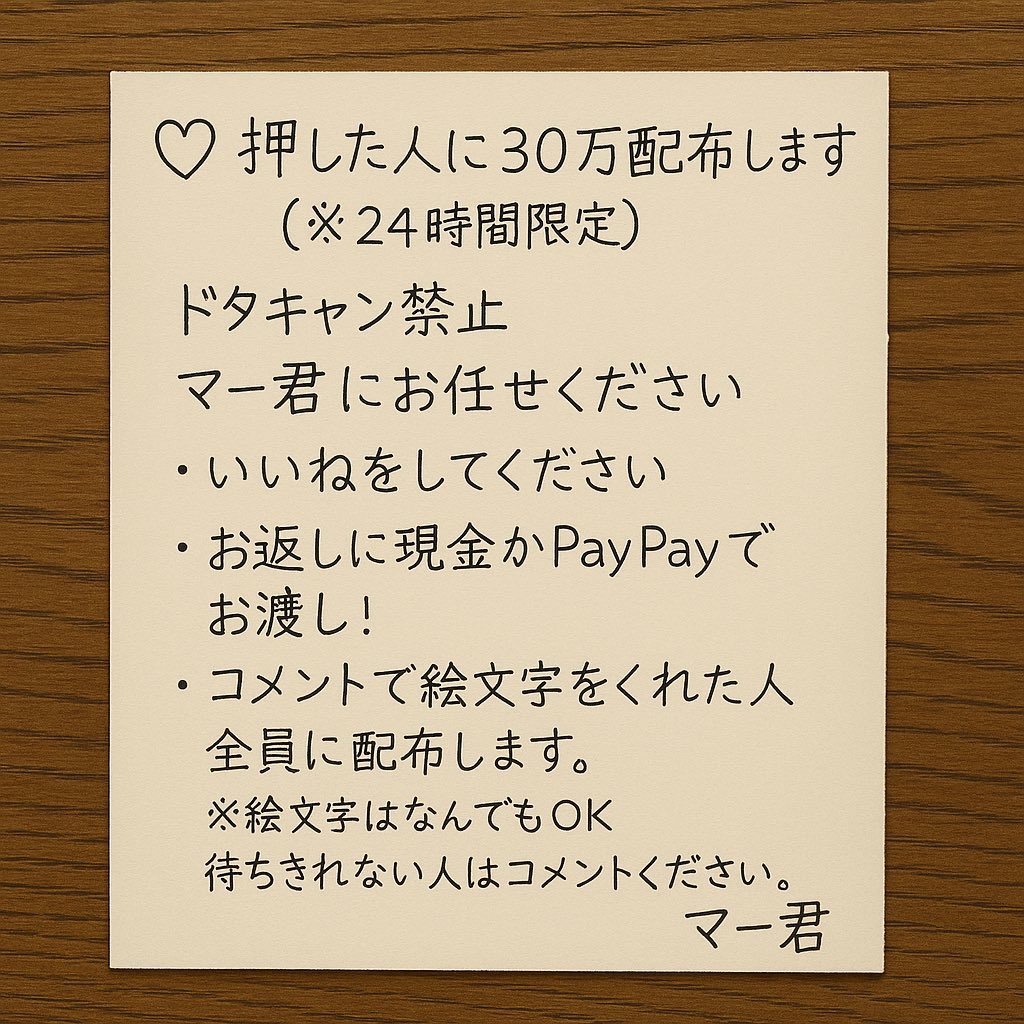 ♡ 押した人に30万配布します
(※24時間限定)
ドタキャン禁止
マー君にお任せください
・いいねをしてください
・お返しに現金かPayPayで
お渡し!
・コメントで絵文字をくれた人
全員に配布します。
※絵文字はなんでもOK
待ちきれない人はコメントください。
マー君